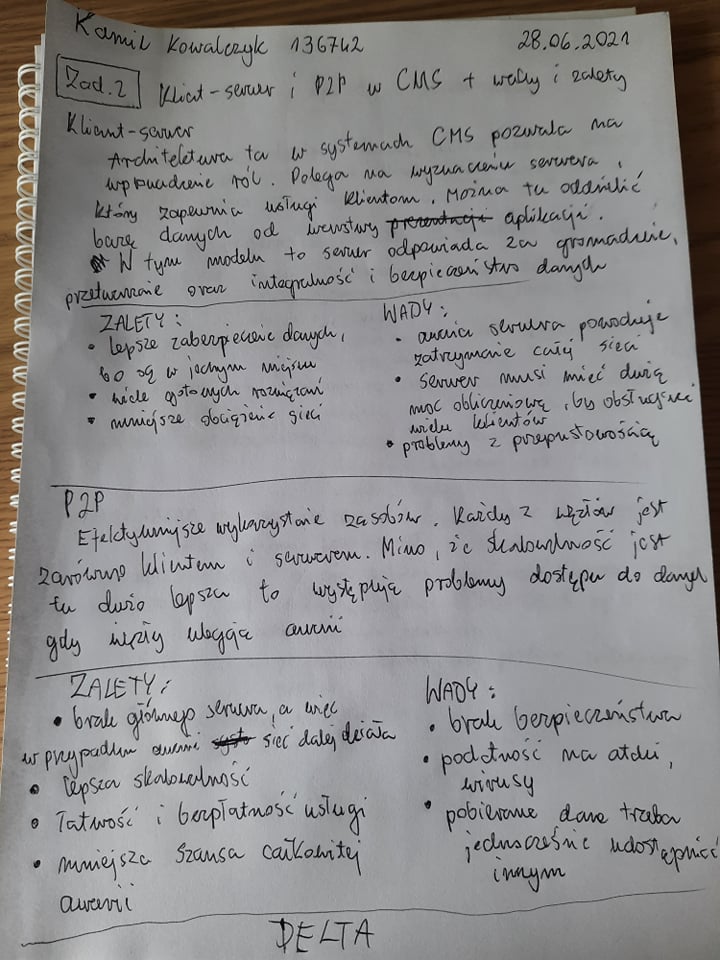 Kamil Kowalczyk 136742 28.06.2021
Zad.2 Klient-serwer i P2P w CMS + wady i zalety
Klient-serwer
Architektura ta w systemach CMS pozwala na
wprowadzenie ról. Polega na wyznaczeniu serwera,
który zapewnia usługi klientom. Można tu oddzielić
bazę danych od warstwy prezentacji aplikacji.
W tym modelu to serwer odpowiada za gromadzenie,
przetwarzanie oraz integralność i bezpieczeństwo danych
ZALETY:
• lepsze zabezpieczenie danych,
bo są w jednym miejscu
• wiele gotowych rozwiązań
• mniejsze obciążenie sieci
WADY:
• awaria serwera powoduje
zatrzymanie całej sieci
• serwer musi mieć dużą
moc obliczeniową, by obsługiwać
wielu klientów
• problemy z przepustowością
P2P
Efektywniejsze wykorzystanie zasobów. Każdy z węzłów jest
zarówno klientem i serwerem. Mimo, że skalowalność jest
tu dużo lepsza to występują problemy dostępu do danych
gdy węzły ulegają awarii
ZALETY:
• brak głównego serwera, a więc
w przypadku awarii sieć dalej działa
• lepsza skalowalność
• łatwość i bezpłatność usługi
• mniejsza szansa całkowitej
awarii
WADY:
• brak bezpieczeństwa
• podatność na ataki,
wirusy
• pobierane dane trzeba
jednocześnie udostępniać
innym
DELTA